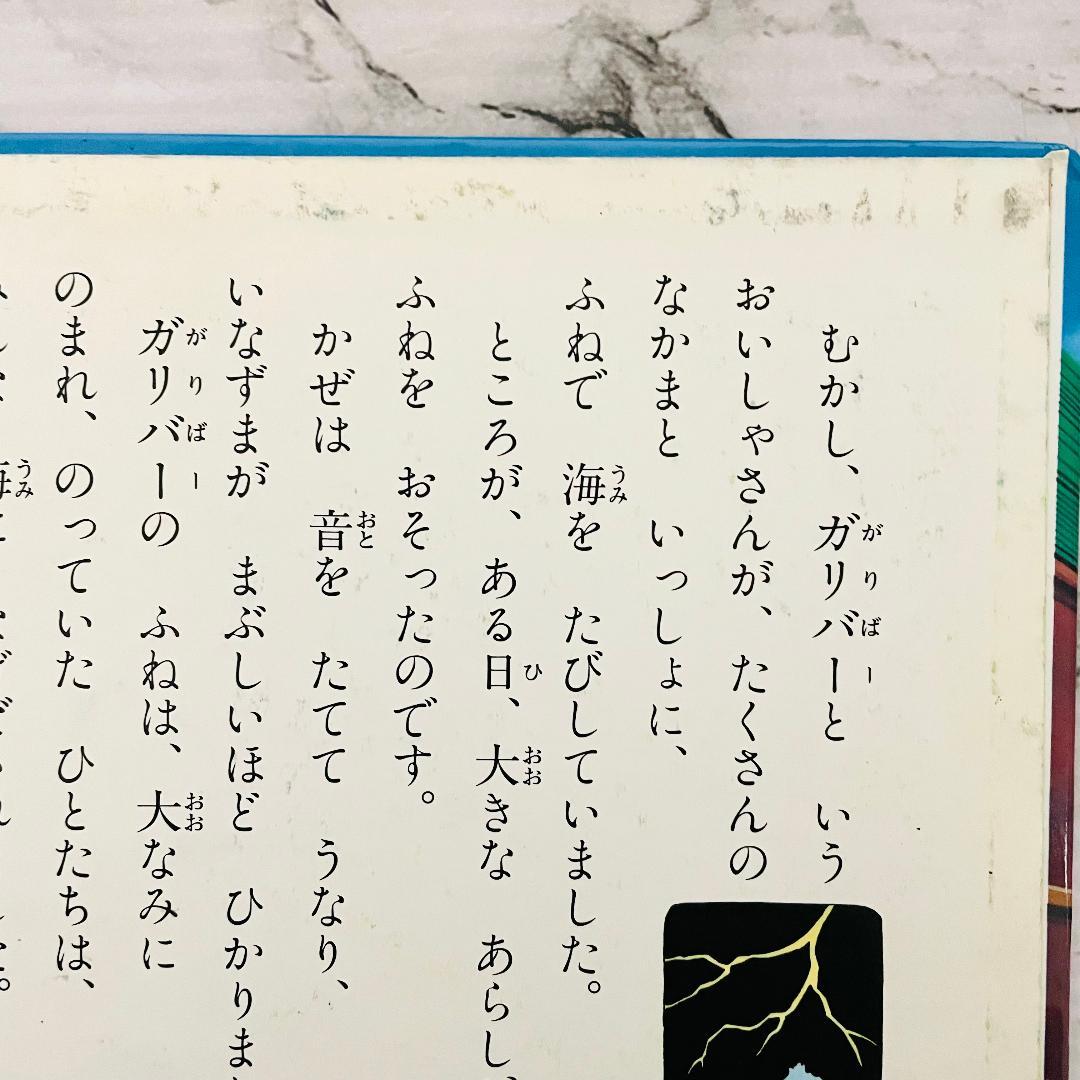 むかし、ガリバーと いう
おいしゃさんが、たくさんの
なかまと いっしょに、
ふねで 海を たびしていました。
ところが、ある日、大きな あらし
ふねを おそったのです。
かぜは 音を たてて うなり、
いなずまが まぶしいほど ひかりま
ガリバーの ふねは、大なみに
のまれ、のっていた ひとたちは、